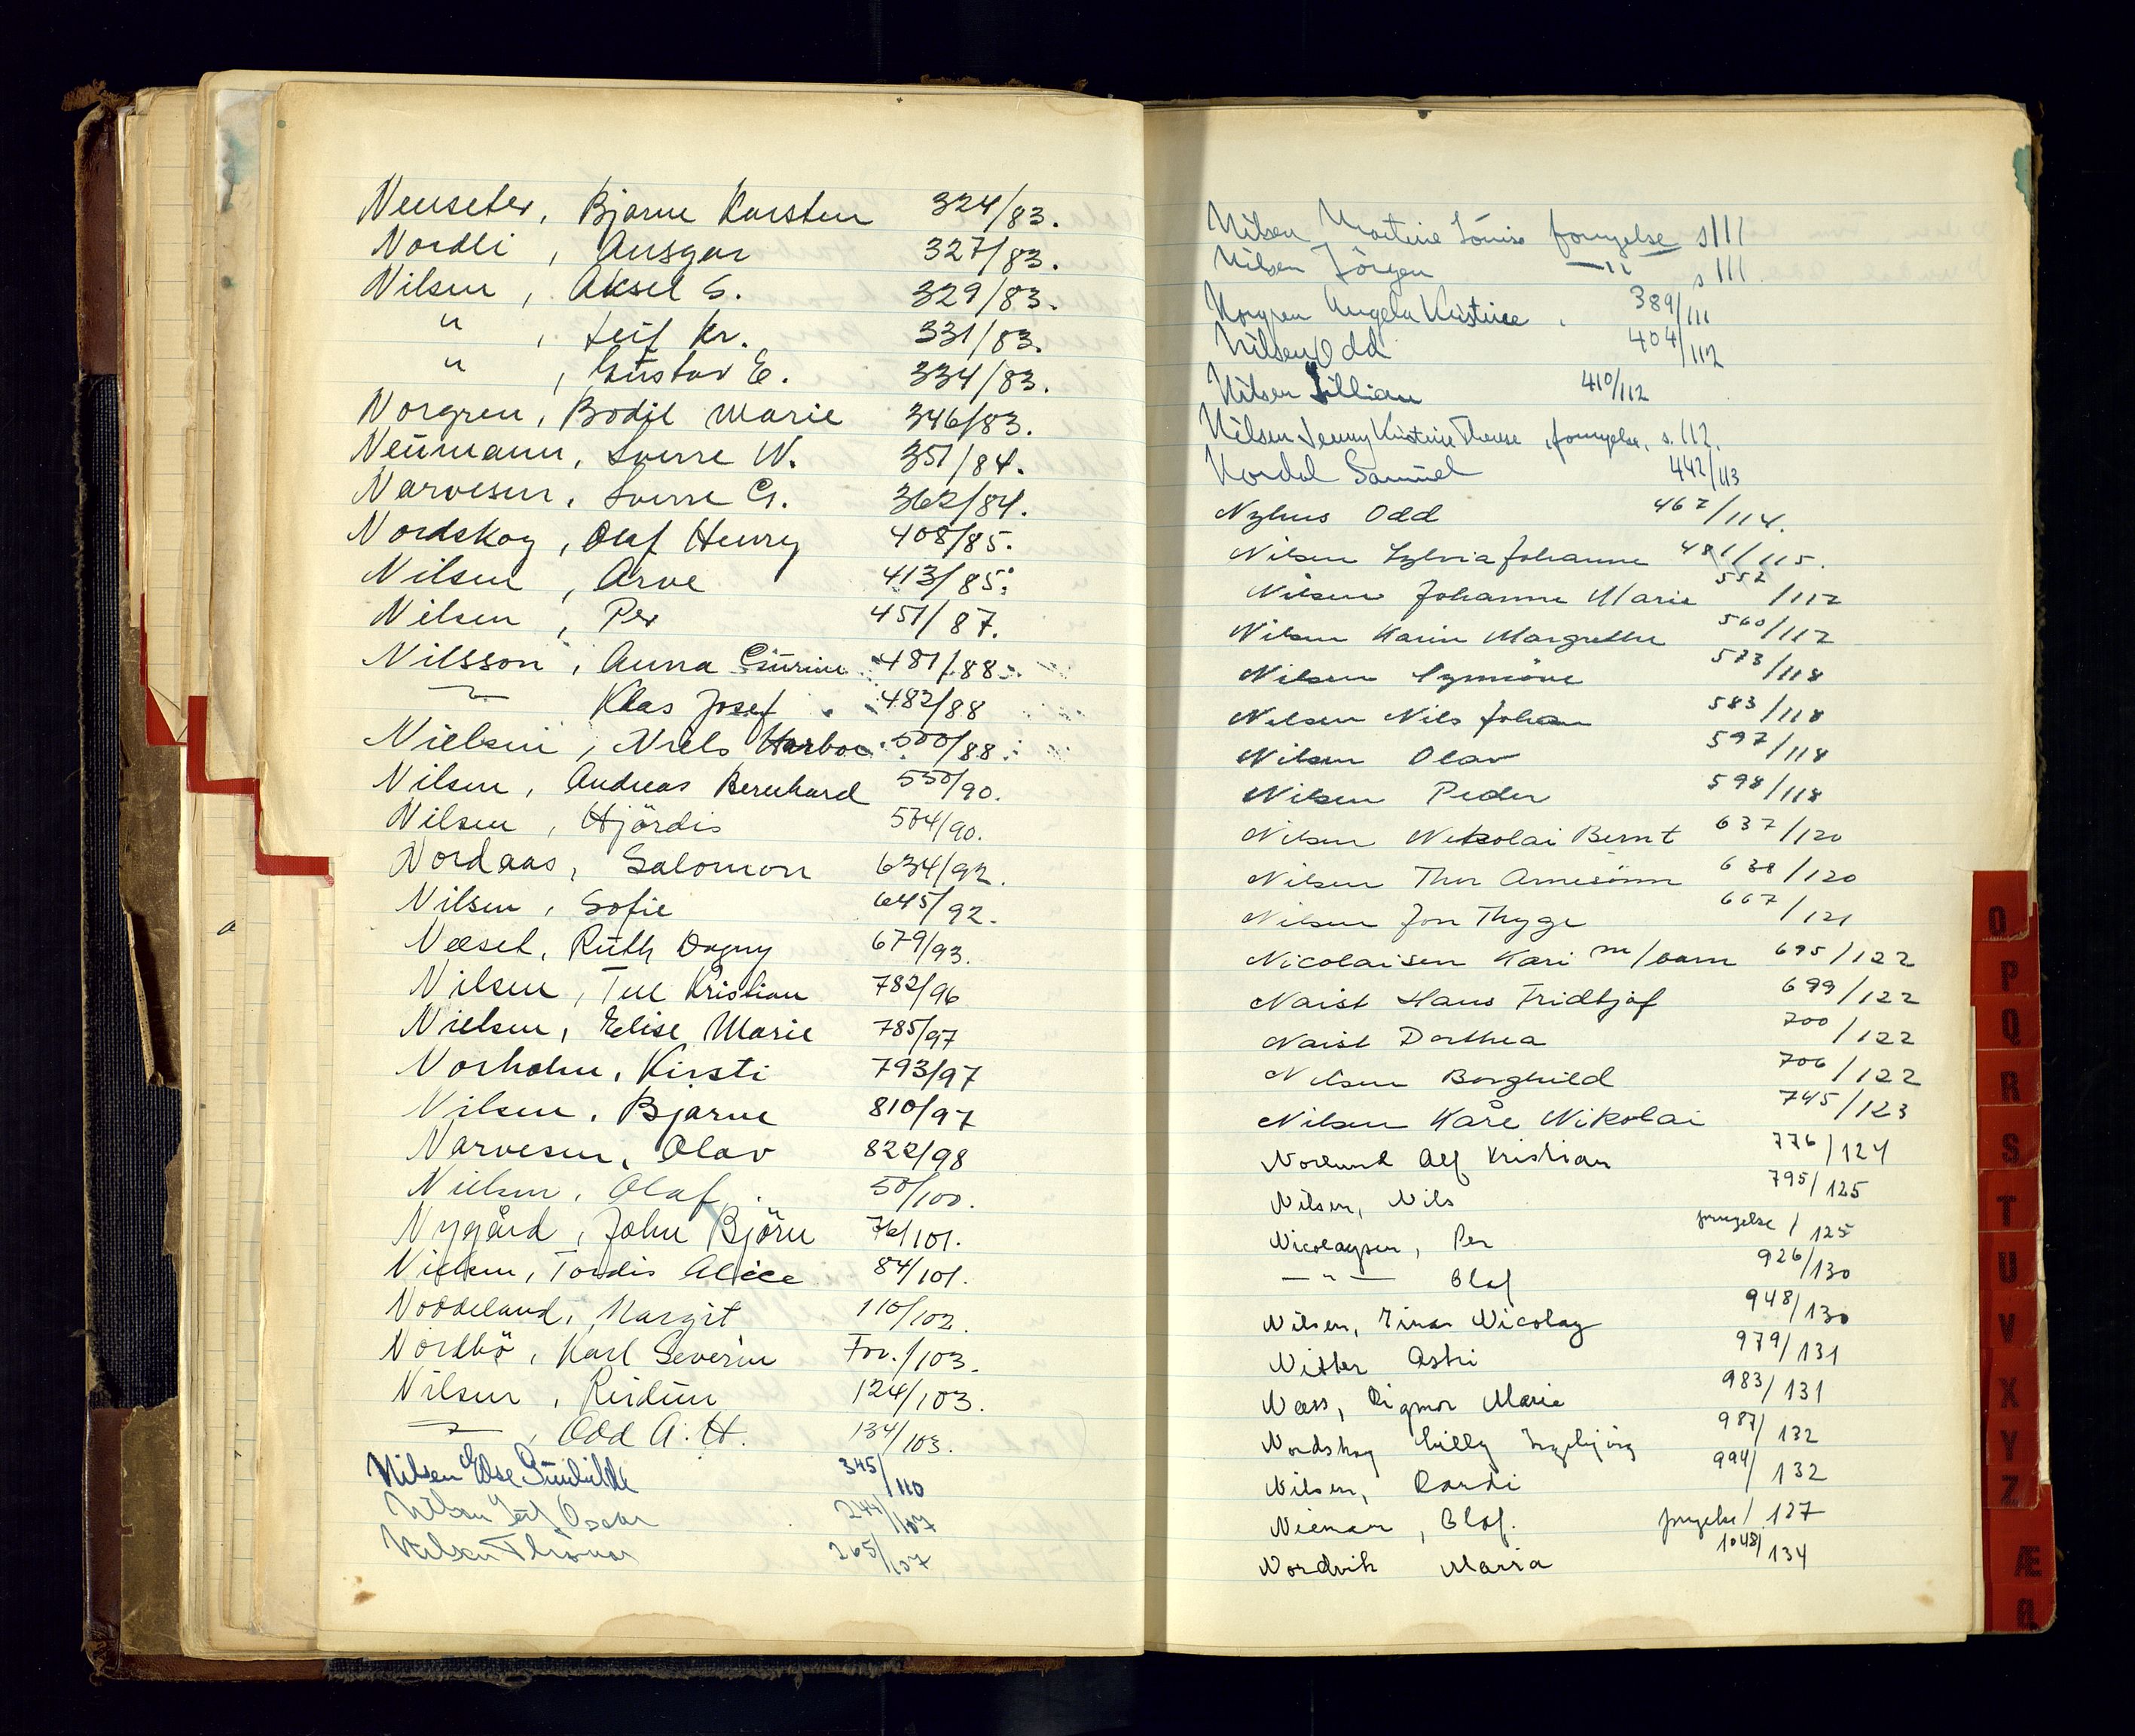 Neuseter, Bjarne Karsten 324/83.
Nordli, Ansgar 327/83.
Nilsen, Aksel S. 329/83.
" , Leif Kr. 331/83.
" , Gustav E. 334/83.
Norgren, Bodil Marie 346/83.
Neumann, Sverre W. 351/84.
Narvesen, Sverre G. 362/84.
Nordskog, Olaf Henry 408/85.
Nilsen, Arve 413/85.
Nilsen, Per 451/87.
Nilsson, Anna 481/88.
Klas Josef 482/88
Nielsen, Niels Harboe 500/88.
Nilsen, Andreas Bernhard 550/90.
Nilsen, Hjördis 574/90.
Nordaas, Salomon 634/92.
Nilsen, Sofie 645/92.
Næset, Ruth Dagny 679/93.
Nilsen, Kristian 782/96
Nielsen, Elise Marie 785/97
Norholm, Kirsti 793/97
Nilsen, Bjarne 810/97
Narvesen, Olav 822/98
Nielsen, Olaf 50/100.
Nygård, John Björn 76/101.
Nielsen, Tordis Alice 84/101.
Noddeland, Margit 110/102.
Nordbö, Karl Severin For./103.
Nilsen, Reidun 124/103.
, Odd A. H. 134/103.
Nilsen Else 345/110
Nilsen Leif Oscar 244/107
Nilsen Thomas 265/107
Nilsen Martine Louise fornyelse s 111
Nilsen Jörgen —"— s 111
Norgren Angela Kristine 389/111
Nilsen Odd 404/112
Nilsen Lillian 410/112
Nilsen Jenny Kristine Therese, fornyelse, s. 112.
Nordal Samuel 442/113
Nyhus Odd 467/114.
Nilsen Sylvia Johanne 481/115.
Nilsen Johanne Marie 552/117
Nilsen Karin Margrethe 560/117
Nilsen Synnöve 573/118
Nilsen Nils Johan 583/118
Nilsen Olav 597/118
Nilsen Peder 598/118
Nilsen Nikolai Bernt 637/120
Nilsen Thor Arnesönn 638/120
Nilsen Jon Thygge 667/121
Nicolaisen Kari m/barn 695/122
Naist Hans Fridtjof 699/122
Naist Dorthea 700/122
Nilsen Borghild 706/122
Nilsen Kåre Nikolai 745/123
Norlund Alf Kristian 776/124
Nilsen, Nils 795/125
Nicolaysen, Per fornyelse/125
— " — Olaf 926/130
Nilsen, Einar Nicolay 948/130
Nitter Astri 979/131
Næss, Rigmor Marie 983/131
Nordskog Lilly Ingebjörg 987/132
Nilsen, Randi 994/132
Nieman, Olaf. fornyelse/127
Nordvik Maria 1048/134
O
P
Q
R
S
T
U
V
X
Y
Z
Æ
Ø